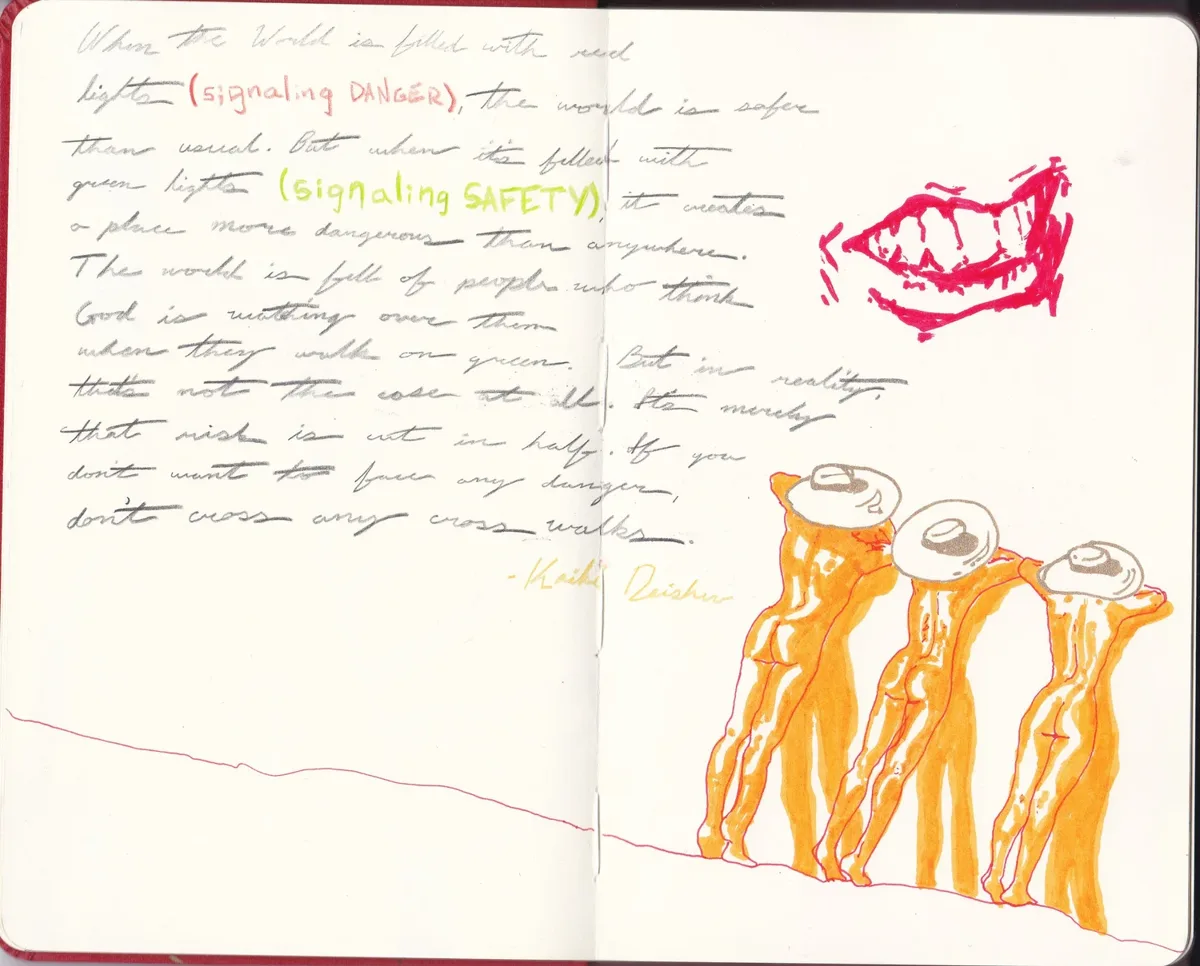 When the World is filled with red
lights (signaling DANGER), the world is safer
than usual. But when it's filled with
green lights (signaling SAFETY), it creates
a place more dangerous than anywhere.
The world is full of people who think
God is watching over them
when they walk on green. But in reality,
that's not the case at all. It's merely
that risk is cut in half. If you
don't want to face any danger,
don't cross any cross walks.
- Kaiki Deishu